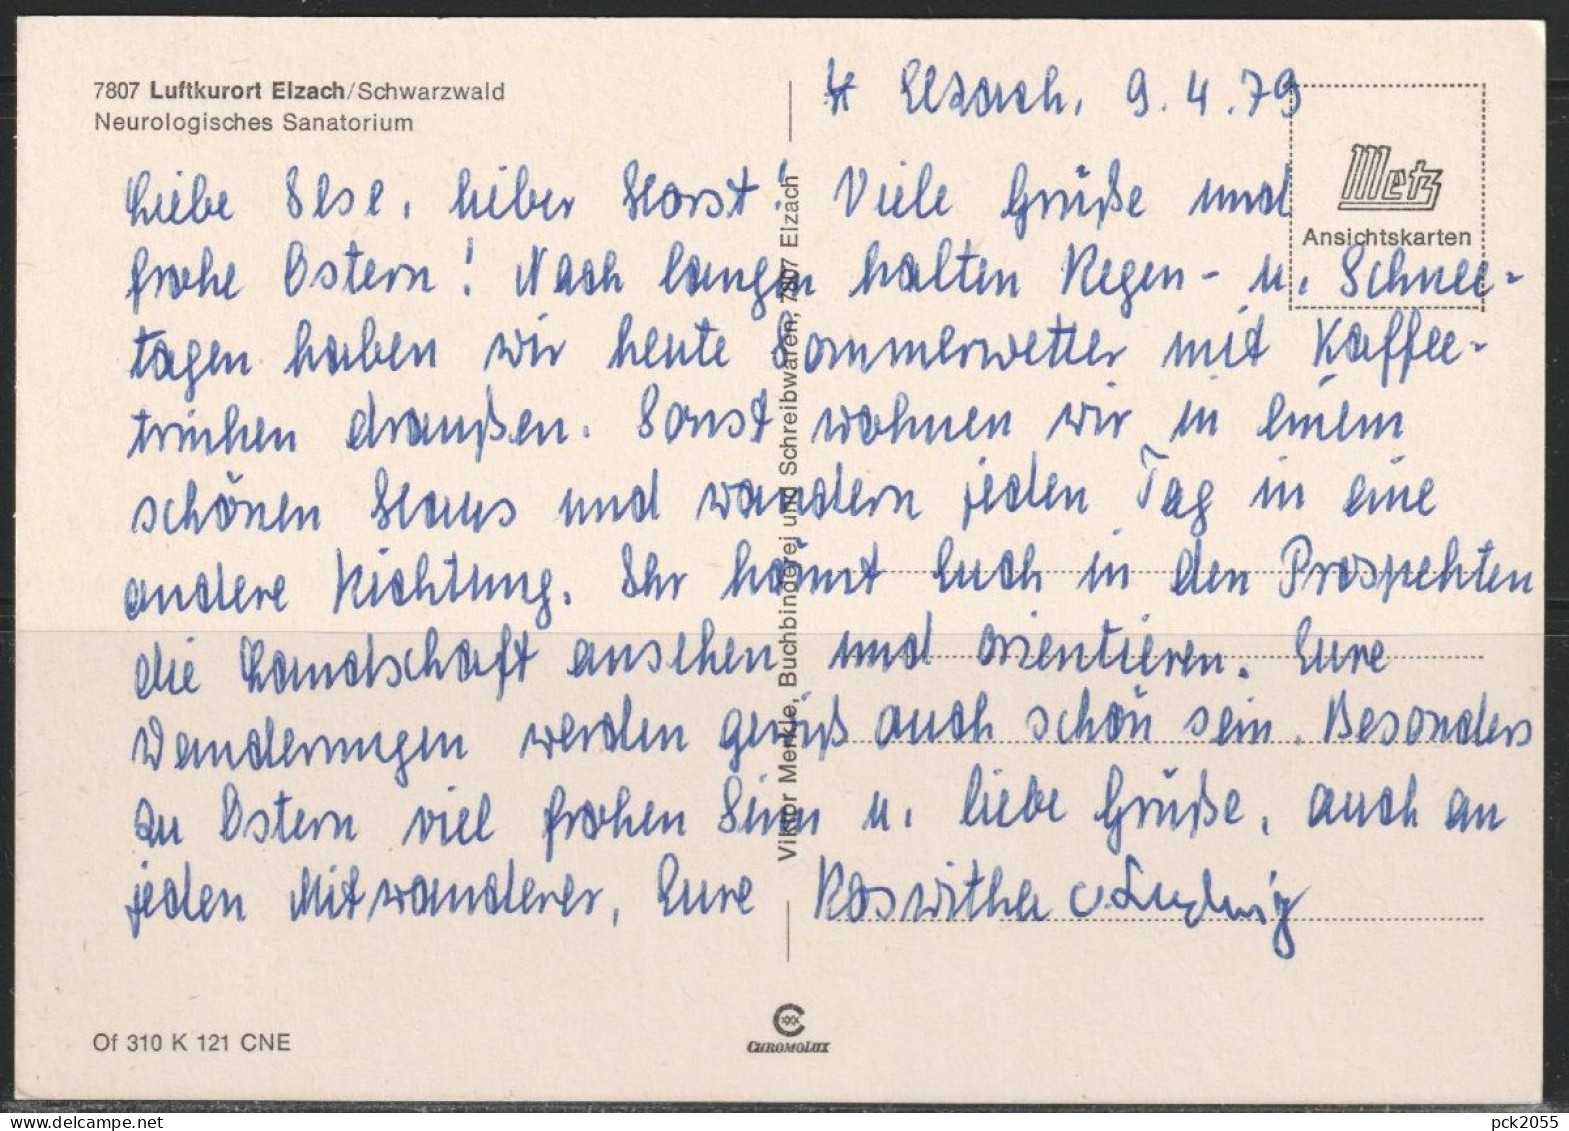 7807 Luftkurort Elzach/Schwarzwald
Neurologisches Sanatorium
Elzach, 9.4.79
Metz
Ansichtskarten
Liebe Ilse, lieber Horst! Viele Grüße und
frohe Ostern! Nach langen kalten Regen- u. Schnee-
tagen haben wir heute Sommerwetter mit Kaffee-
trinken draußen. Sonst wohnen wir in einem
schönen Haus und wandern jeden Tag in eine
andere Richtung. Ihr könnt Euch in den Prospekten
die Landschaft ansehen und orientieren. Eure
Wanderungen werden gewiß auch schön sein. Besonders
zu Ostern viel frohen Sinn u. liebe Grüße, auch an
jeden Mitwanderer, Eure Roswitha u. Ludwig
Viktor Merkle, Buchbinderei und Schreibwaren, 7807 Elzach
Of 310 K 121 CNE
CHROMOLUX
pck2055